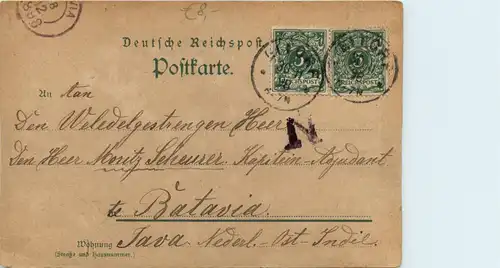 €8,-
Deutsche Reichspost
Postkarte.
5 5
An tan
Den Weledelgestrengen Heer
N
Den Heer Moritz Scheurer Kapitein-Adjudant
te Batavia.
Wohnung Java. Nederl-Ost-Indië
(Straße und Hausnummer.)